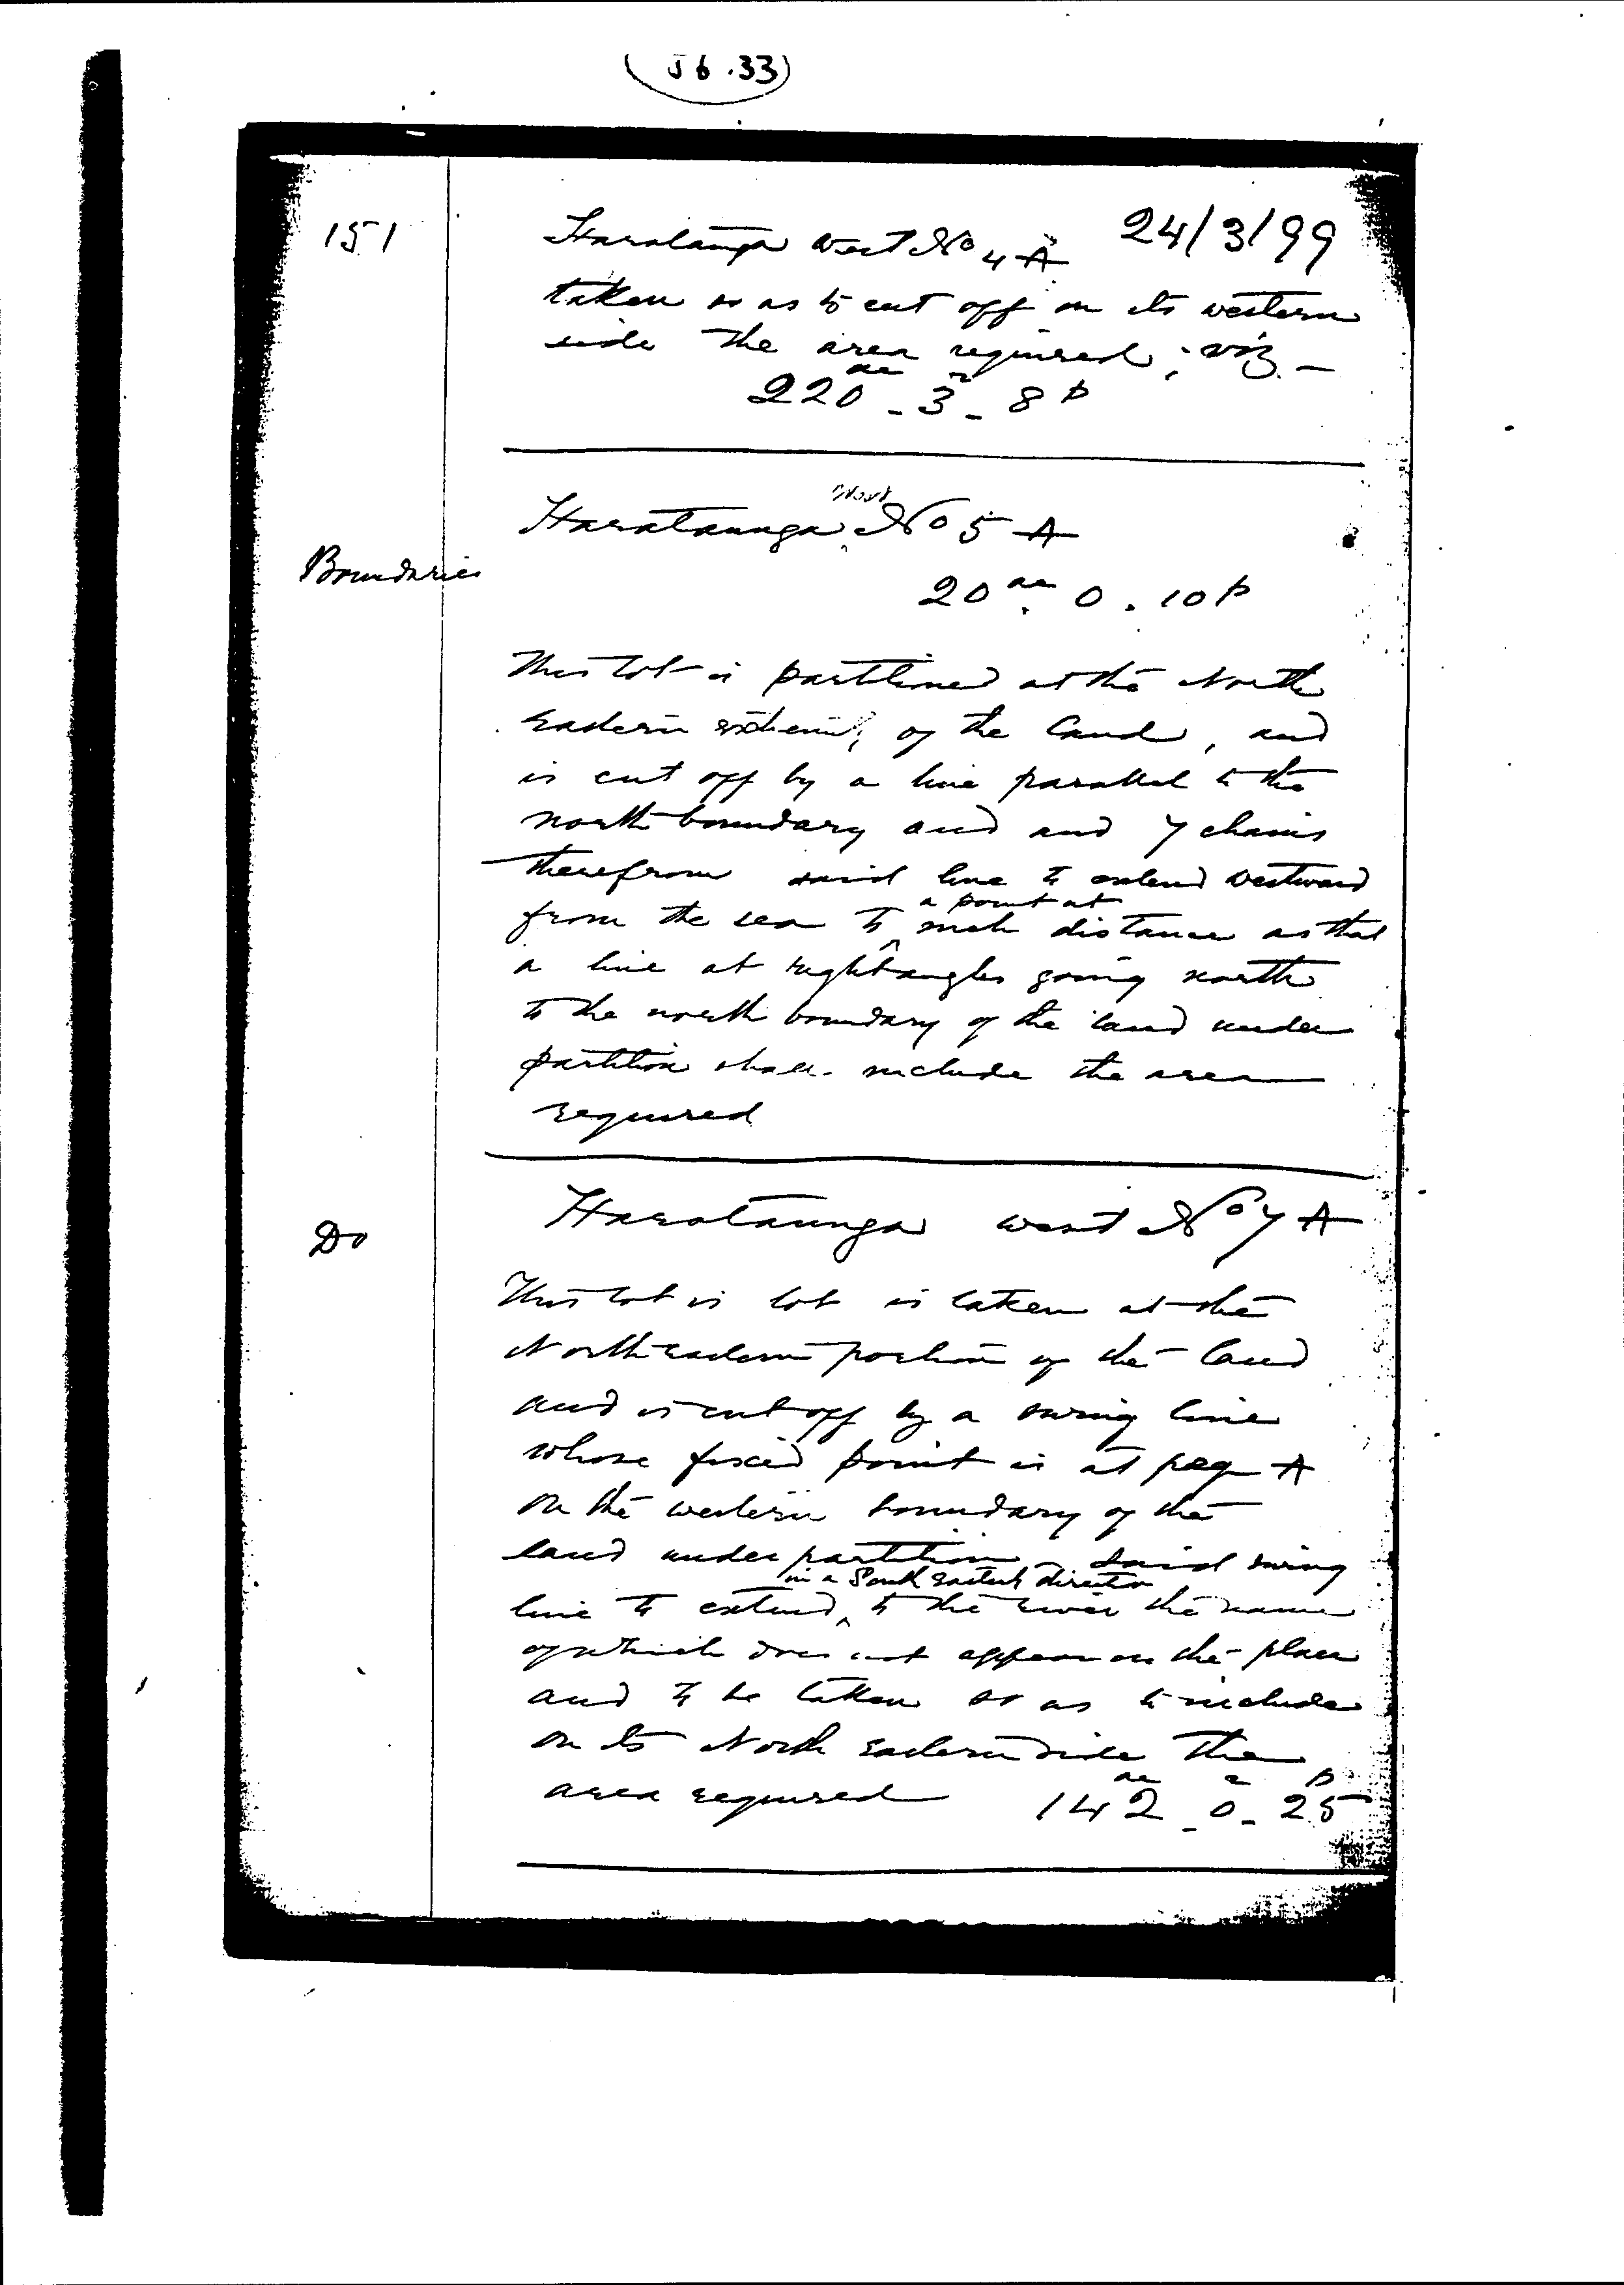 (J6.33)
151
Harataunga West No 4 A 24/3/99
taken so as to cut off on its western
side the area required; viz. —
220 ac - 3 r - 8 p
West
Harataunga No 5 A
Boundaries
20 ac . 0 . 10 p
This lot is partitioned at the North
Eastern extremity of the land, and
is cut off by a line parallel to the
north boundary and and 7 chains
therefrom said line to extend westward
a point at
from the sea to ^ such distance as that
a line at right angles going north
to the north boundary of the land under
partition shall include the area
required
Do
Harataunga West No 7 A
This lot is lot is taken at the
North eastern portion of the land
and is cut off by a swing line
whose fixed point is at peg A
on the western boundary of the
land under partition said swing
in a South Easterly direction
line to extend ^ to the river the name
of which does not appear on the plan
and to be taken so as to include
on its North Eastern side the
area required 142 ac - 0 r - 25 p